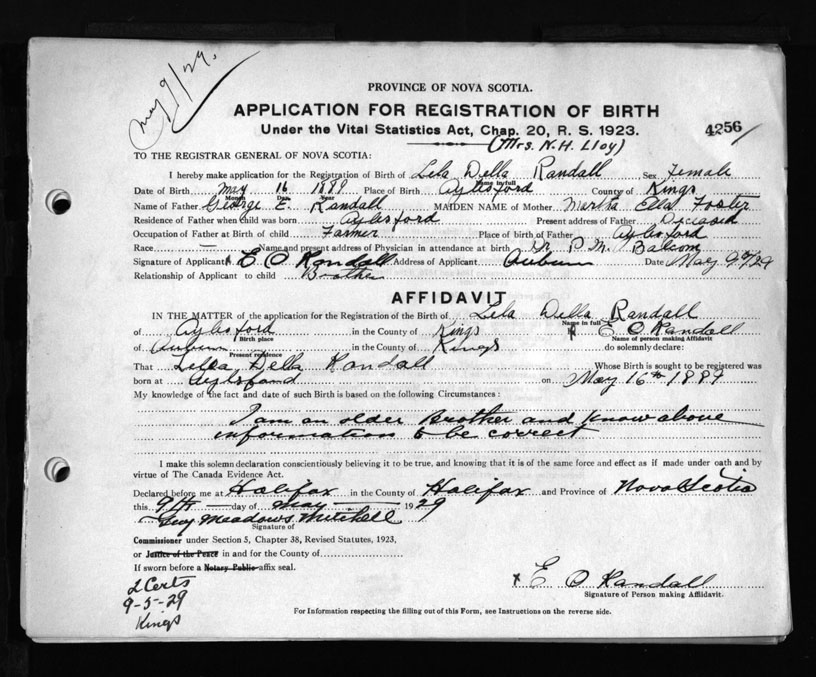 May 9/29.
PROVINCE OF NOVA SCOTIA.
APPLICATION FOR REGISTRATION OF BIRTH
Under the Vital Statistics Act, Chap. 20, R. S. 1923.
4256
(Mrs. N. H. Lloy)
TO THE REGISTRAR GENERAL OF NOVA SCOTIA:
I hereby make application for the Registration of Birth of Lela Della Randall Sex Female
Name in full
Date of Birth May 16 1889 Place of Birth Aylesford County of Kings
Month Day Year
Name of Father George E. Randall MAIDEN NAME of Mother Martha Ella Foster
Residence of Father when child was born Aylesford Present address of Father Deceased
Occupation of Father at Birth of child Farmer Place of birth of Father Aylesford
Race — Name and present address of Physician in attendance at birth Dr. P. M. Balcom
Signature of Applicant E O Randall Address of Applicant Auburn Date May 9th/29
Relationship of Applicant to child Brother
AFFIDAVIT
IN THE MATTER of the application for the Registration of the Birth of Lela Della Randall
Name in full
of Aylesford in the County of Kings x E O Randall
Birth place Name of person making Affidavit
of Auburn in the County of Kings do solemnly declare:
Present residence
That Lelea Della Randall Whose Birth is sought to be registered was
born at Aylsford on May 16th 1889
My knowledge of the fact and date of such Birth is based on the following Circumstances:
I am an older Brother and know above
information to be correct
I make this solemn declaration conscientiously believing it to be true, and knowing that it is of the same force and effect as if made under oath and by
virtue of The Canada Evidence Act.
Declared before me at Halifax in the County of Halifax and Province of Nova Scotia
this 9th day of May 1929
Guy Meadows Mitchell
Signature of
Commissioner under Section 5, Chapter 38, Revised Statutes, 1923,
or Justice of the Peace in and for the County of
If sworn before a Notary Public affix seal.
x E O Randall
Signature of Person making Affidavit.
2 Certs
9-5-29
Kings
For Information respecting the filling out of this Form, see Instructions on the reverse side.